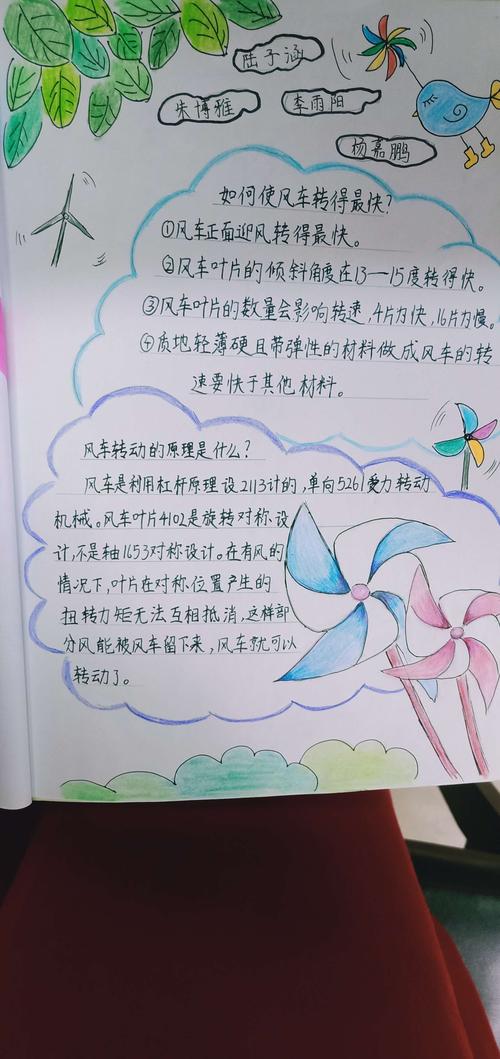 陆予涵
朱博雅
李雨阳
杨嘉鹏
如何使风车转得最快?
①风车正面迎风转得最快。
②风车叶片的倾斜角度在13—15度转得快。
③风车叶片的数量会影响转速,4片为快,16片为慢。
④质地轻薄硬且带弹性的材料做成风车的转
速要快于其他材料。
风车转动的原理是什么?
风车是利用杠杆原理设2113计的,单向5261受力转动
机械。风车叶片4102是旋转对称设
计,不是轴1653对称设计。在有风的
情况下,叶片在对称位置产生的
扭转力矩无法互相抵消,这样部
分风能被风车留下来,风车就可以
转动了。